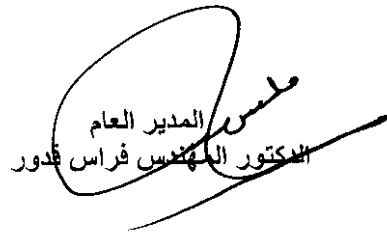 المدير العام
الدكتور المهندس فراس قدور